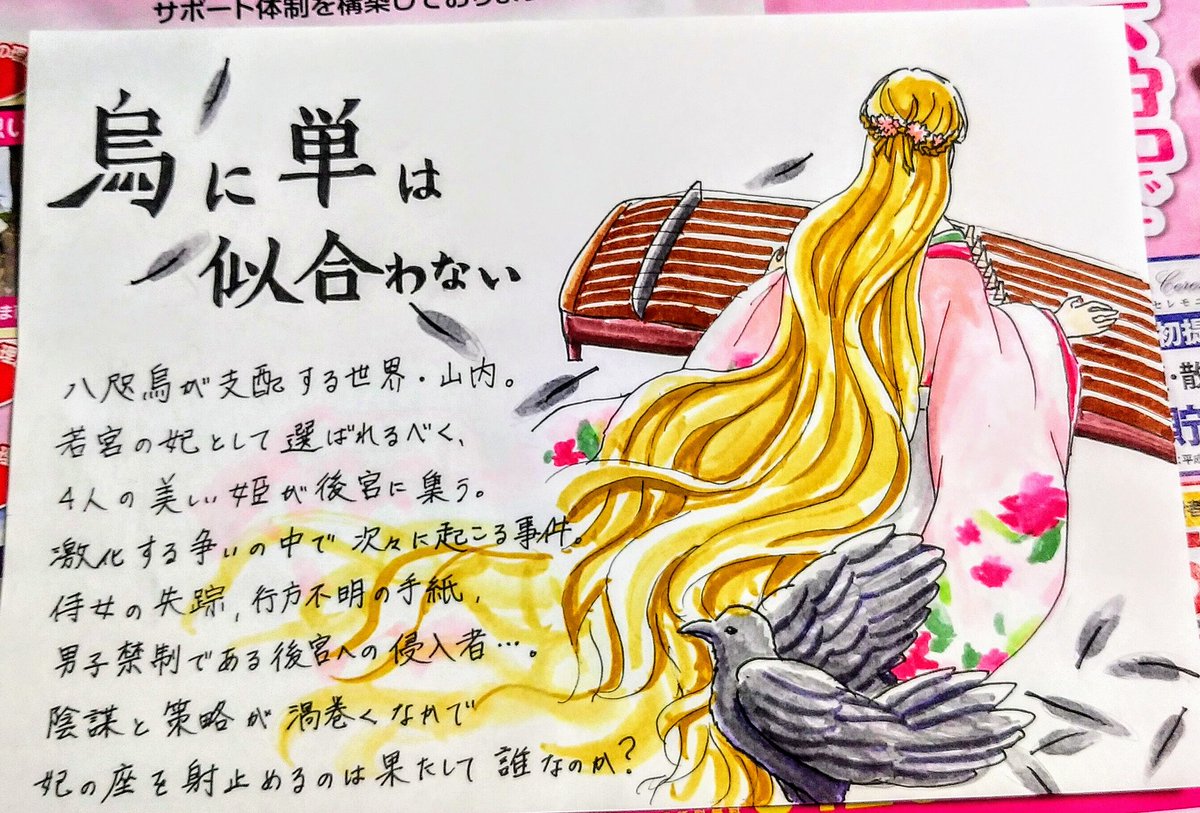 サポート体制を構築しており
烏に単は
似合わない
八咫烏が支配する世界・山内。
若宮の妃として選ばれるべく、
4人の美しい姫が後宮に集う。
激化する争いの中で次々に起こる事件。
侍女の失踪、行方不明の手紙、
男子禁制である後宮への侵入者…。
陰謀と策略が渦巻くなかで
妃の座を射止めるのは果たして誰なのか?
セレモニ
初提
・散